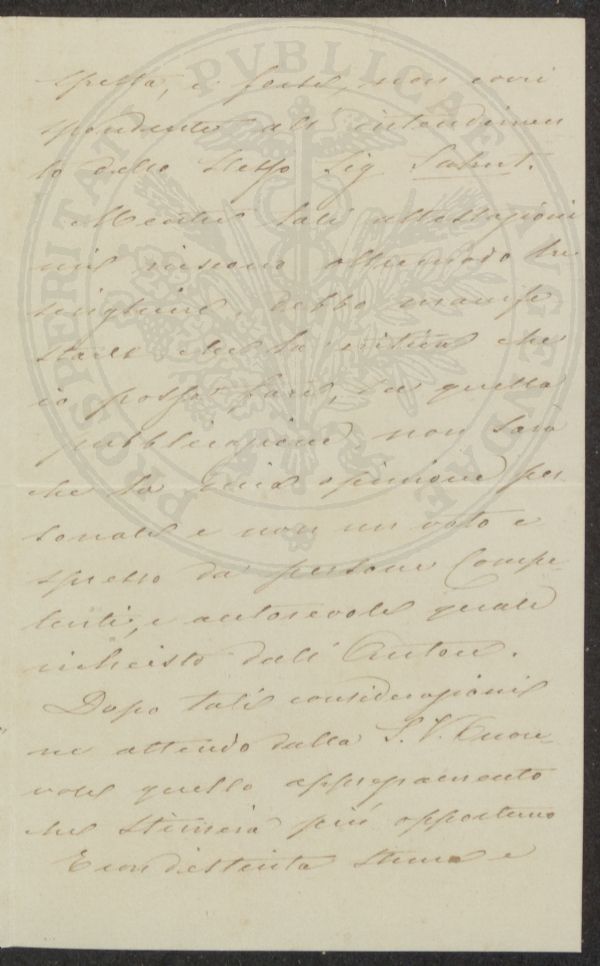 spetta, e forse, non corri
spondente all' intendimen
to dello stesso Sig Sahut.
Mentre tali attestazioni
mi riescono oltremodo lu
singhiere, debbo manife
stare che la critica che
io possa fare, su quella
pubblicazione, non sarà
che la mia opinione per
sonale e non un voto e
spresso da persone Compe
tenti, e autorevole quale
richiesto dall' Autore.
Dopo tali considerazioni
ne attendo dalla S. V. Onore
vole quello apprezzamento
che stimerà più opportuno
E con distinta stima e
PROSPERITATI PVBLICAE AVGENDAE